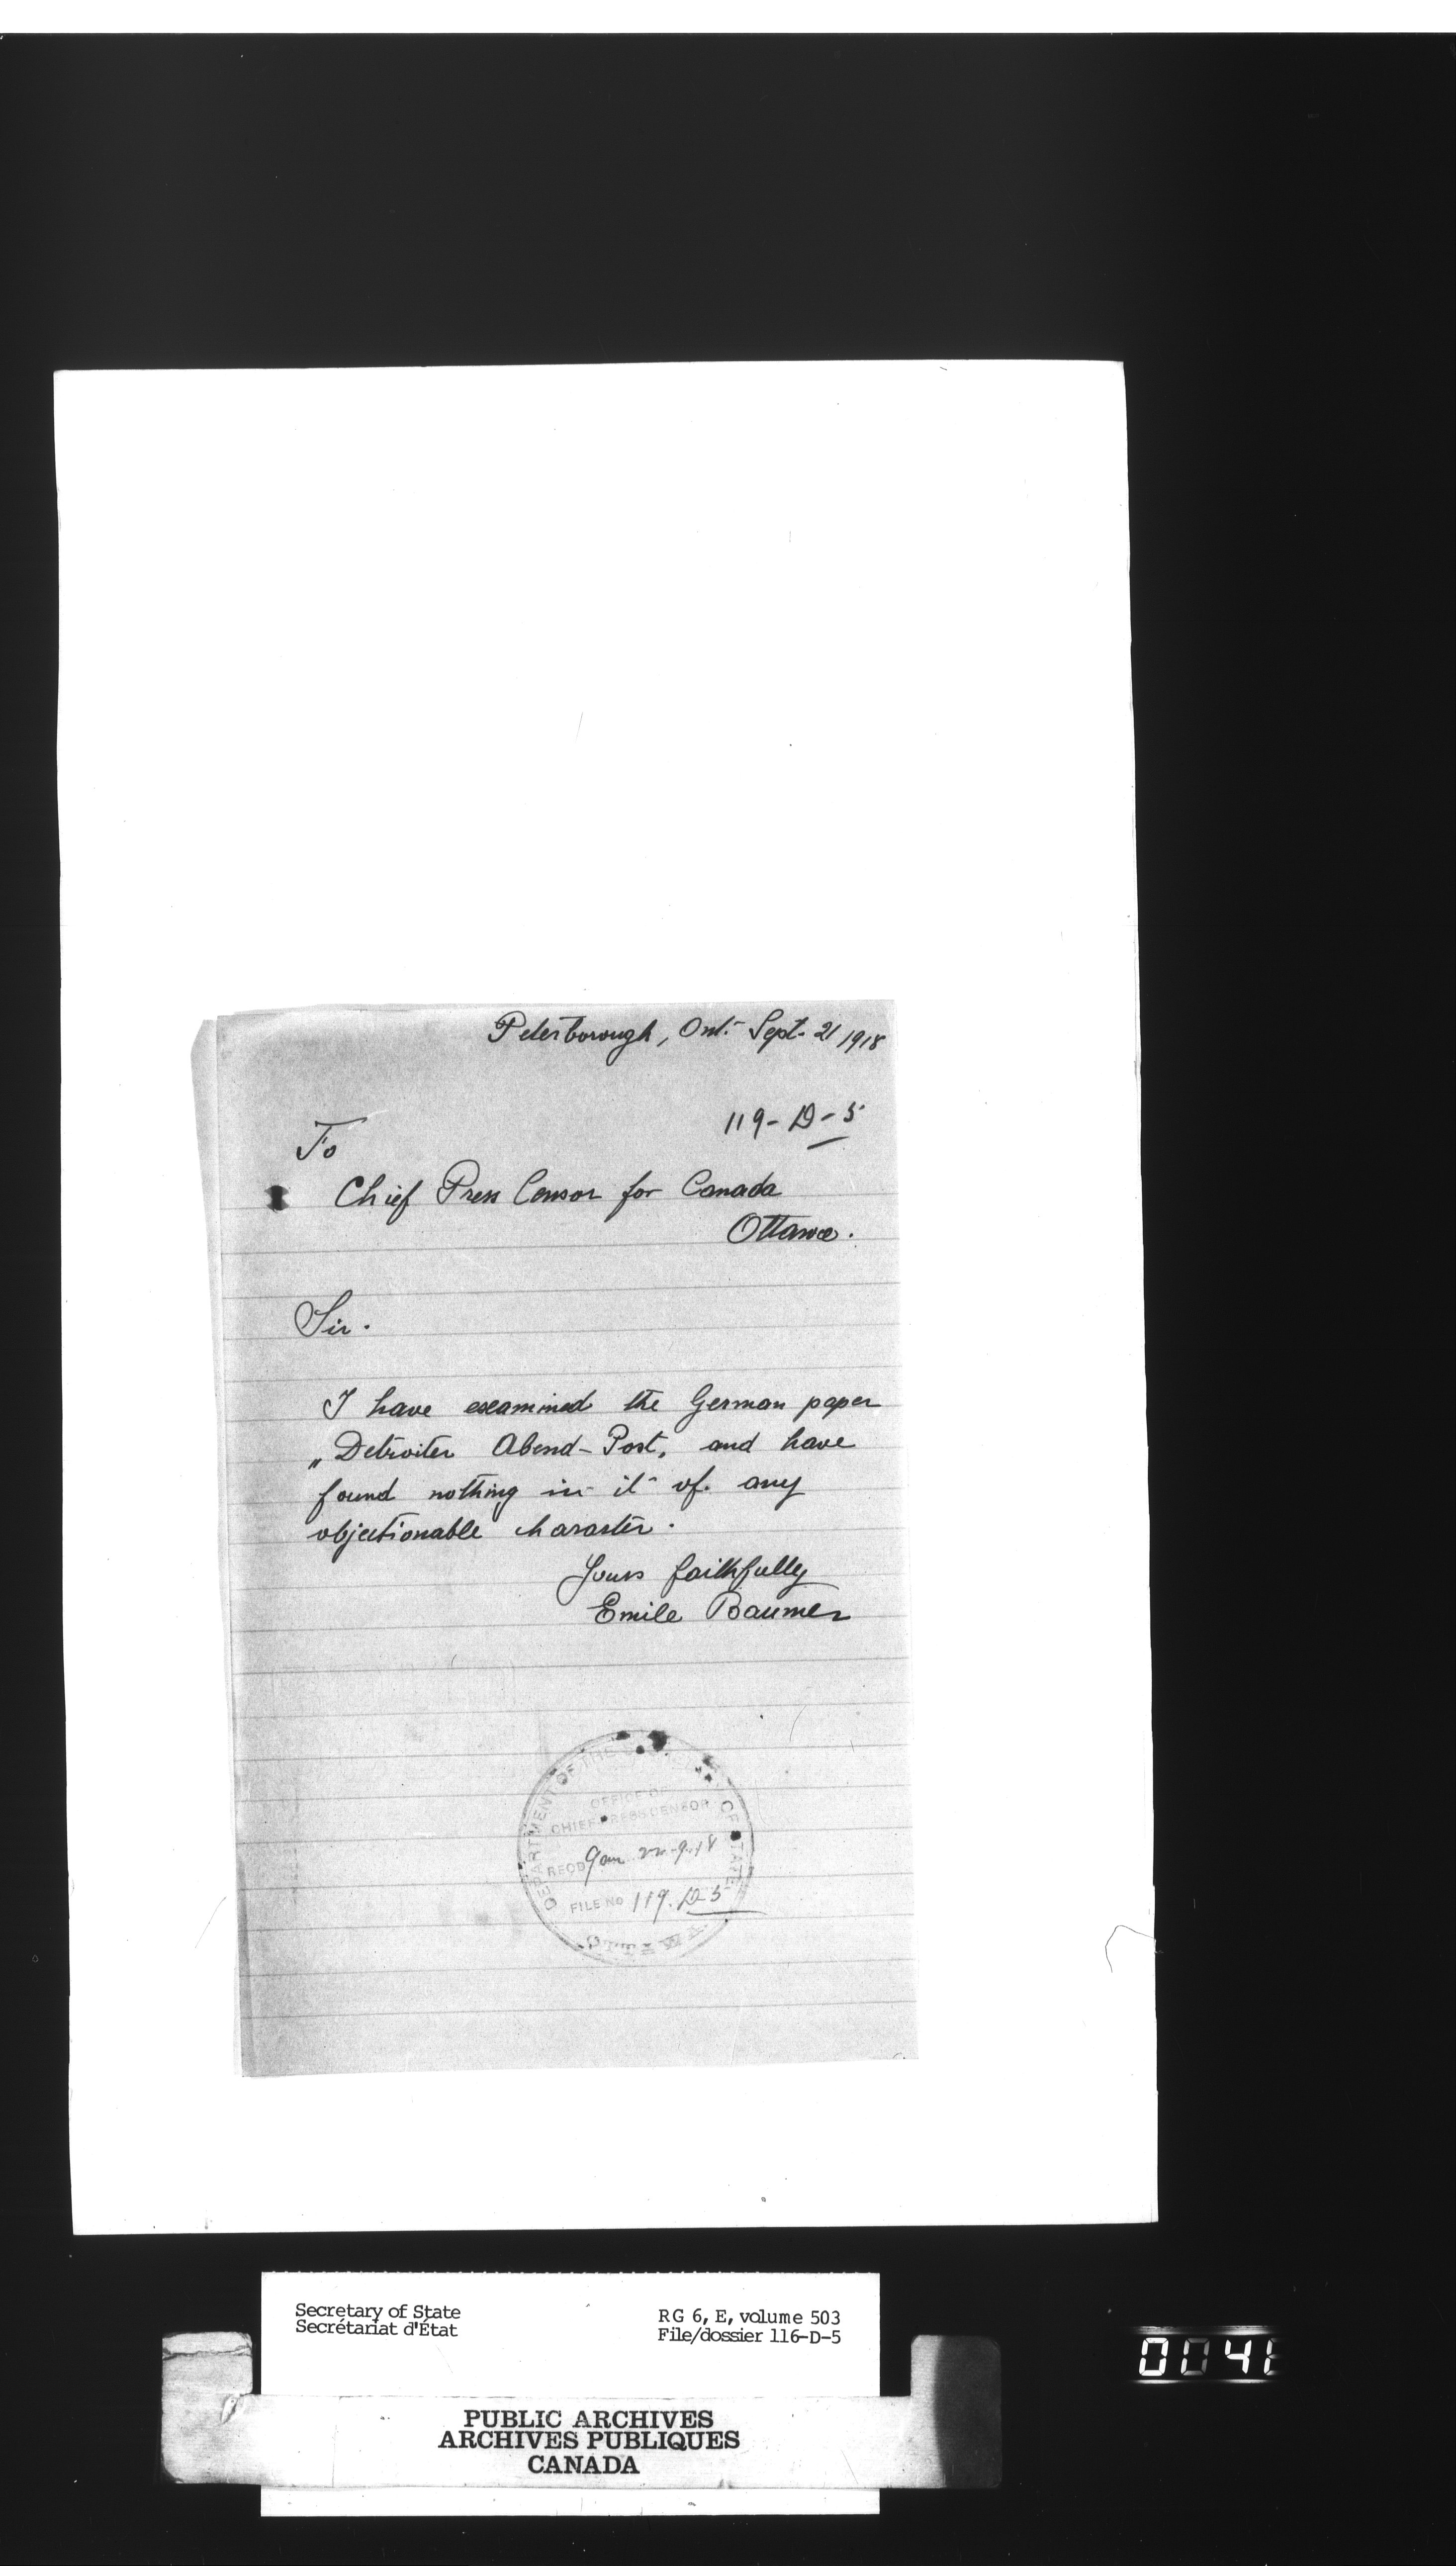 Peterborough, Ont. Sept. 21 1918
119-D-5
To
Chief Press Censor for Canada
Ottawa.
Sir.
I have examined the German paper
„Detroiter Abend-Post„ and have
found nothing in it of any
objectionable character.
Yours faithfully
Emile Baumer
DEPARTMENT OF THE OF STATE
OFFICE OF
CHIEF PRESS CENSOR
RECD 22-9-18
FILE No 119-D-5
Secretary of State
Secrétariat d'État
RG 6, E, volume 503
File/dossier 116-D-5
PUBLIC ARCHIVES
ARCHIVES PUBLIQUES
CANADA
0041